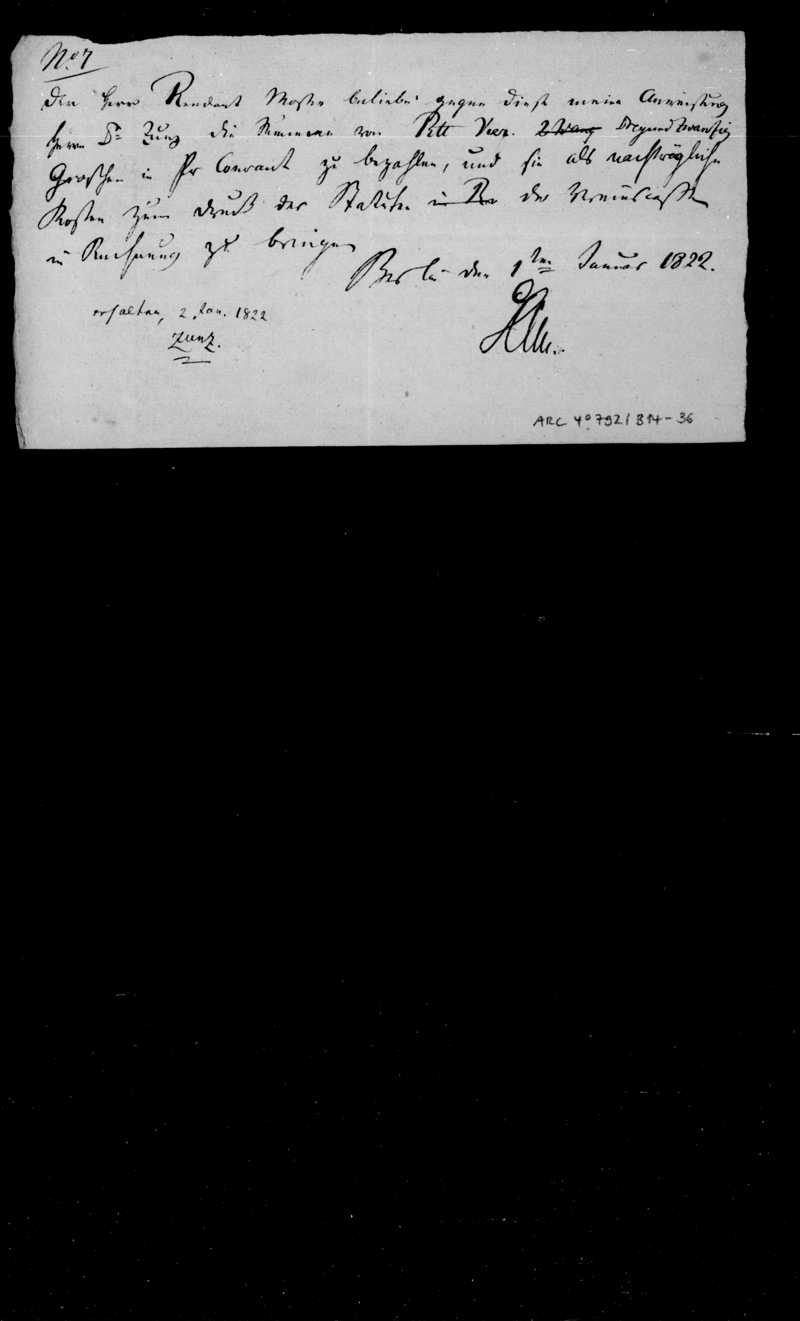 No 7
Der Herr Rendant Moser beliebe gegen diese meine Anweisung
Herrn Dr Zunz die Summe von Rtl Vier. Zwanz Dreyundzwanzig
Groschen in Pr Courant zu bezahlen, und sie als nachträgliche
Kosten zum Druck der Statuten in Re der Vereinscasse
in Rechnung zu bringen
Berlin den 1ten Januar 1822.
erhalten, 2 Jan. 1822
Zunz.
ARC 4° 792/B14-36